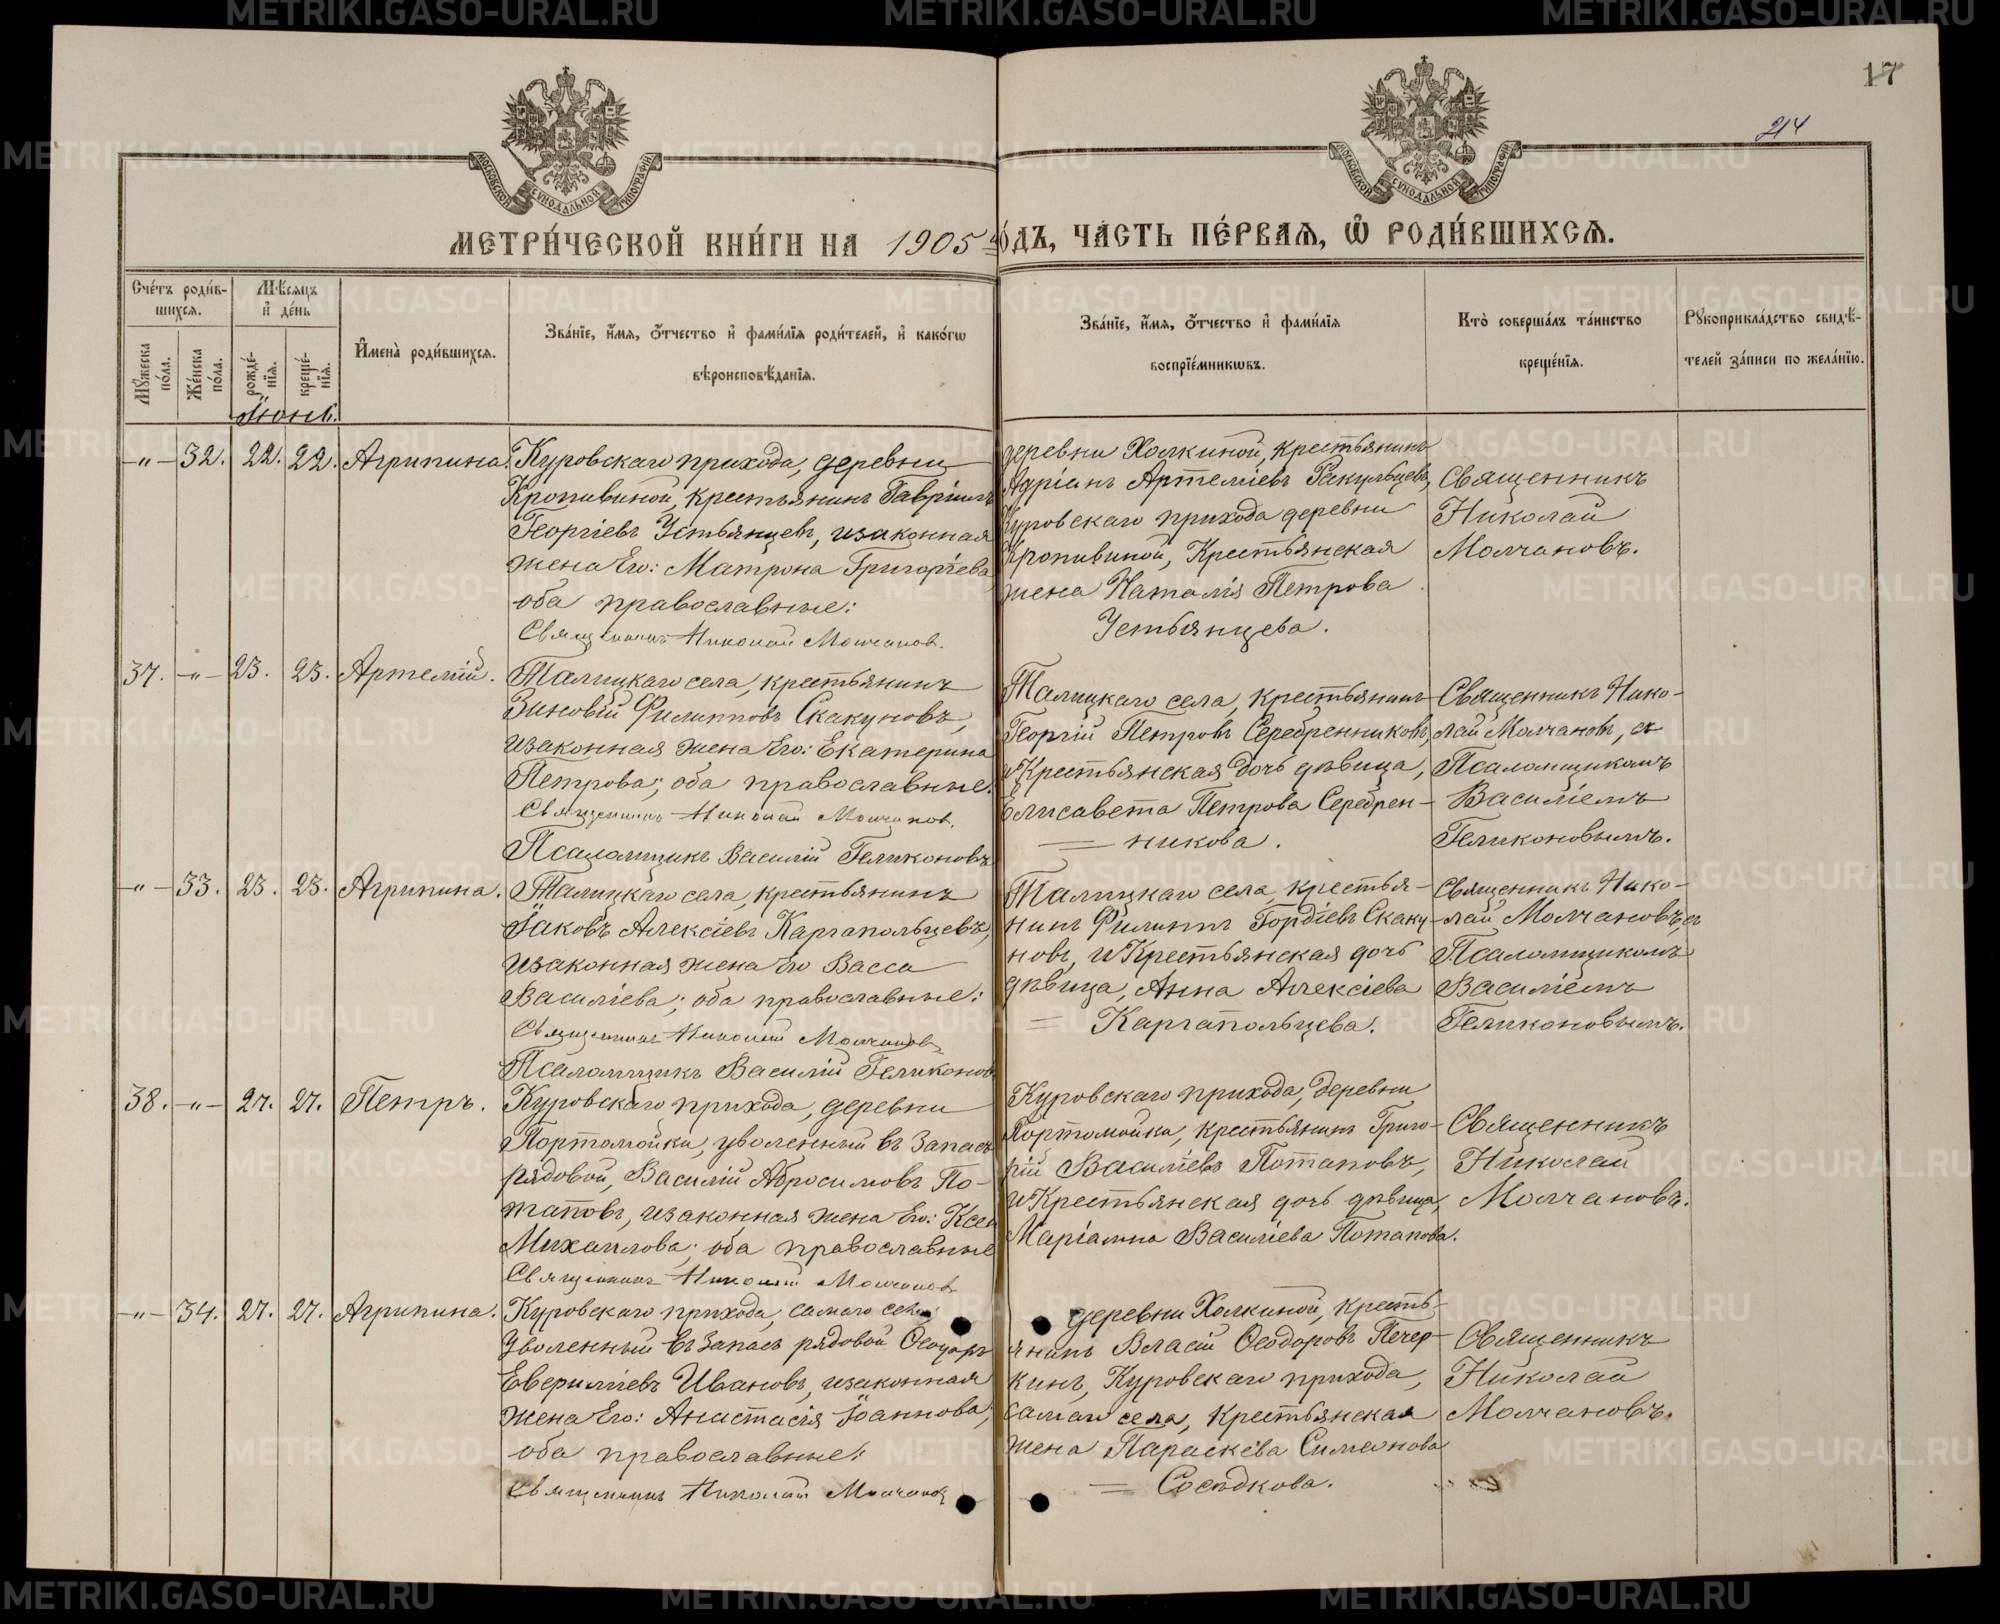 17
214
МОСКОВСКОЙ СѴНОДАЛЬНОЙ ТИПОГРАФІИ
МОСКОВСКОЙ СѴНОДАЛЬНОЙ ТИПОГРАФІИ
МЕТРИ́ЧЕСКОЙ КНИ́ГИ НА 1905 го́дъ, ЧА́СТЬ ПЕ́РВАЯ, Ѡ҆ РОДИ́ВШИХСЯ.
Сче́тъ роди́в-
шихся.
Мѣ́сяцъ
и҆ де́нь
Мꙋ́жеска по́ла.
Же́нска по́ла.
рожде́-
нїя.
креще́-
нїя.
И҆мена̀ роди́вшихся.
Зва́нїе, и҆́мя, ѻ҆́тчество и҆ фами́лїя роди́телей, и҆ како́гѡ
вѣроисповѣ́данїя.
Зва́нїе, и҆́мя, ѻ҆́тчество и҆ фами́лїя
воспрїе́мникѡвъ.
Кто̀ соверша́лъ та́инство
креще́нїя.
Рꙋкоприкла́дство свидѣ́-
телей за́писи по жела́нїю.
Іюнь.
-"- 32. 22. 22. Агрипина.
Куровскаго прихода, деревни
Кропивиной, крестьянинъ Гавріилъ
Георгіевъ Устьянцевъ, и законная
жена Его: Матрона Григоріева
оба православные:
Священникъ Николай Молчановъ.
деревни Холкиной, крестьянинъ
Адріанъ Артеміевъ Ракульцевъ,
Куровскаго прихода деревни
Кропивиной, Крестьянская
жена Наталія Петрова
Устьянцева.
Священникъ
Николай
Молчановъ.
37. -"- 23. 23. Артемій.
Талицкаго села, крестьянинъ
Зиновій Филипповъ Скакуновъ,
и законная жена Его: Екатерина
Петрова; оба православные:
Священникъ Николай Молчановъ.
Псаломщикъ Василій Геликоновъ
Талицкаго села, крестьянинъ
Георгій Петровъ Серебренниковъ,
и Крестьянская дочь дѣвица,
Елисавета Петрова Серебрен-
никова.
Священникъ Нико-
лай Молчановъ, съ
Псаломщикомъ
Василіемъ
Геликоновымъ.
-"- 33. 23. 23. Агрипина.
Талицкаго села, крестьянинъ
Іаковъ Алексіевъ Каргапольцевъ,
и законная жена Его Васса
Василіева; оба православные:
Священникъ Николай Молчановъ
Псаломщикъ Василій Геликоновъ
Талицкаго села, крестья-
нинъ Филиппъ Гордіевъ Скаку-
новъ, и Крестьянская дочь
дѣвица, Анна Алексіева
Каргапольцева.
Священникъ Нико-
лай Молчановъ, съ
Псаломщикомъ
Василіемъ
Геликоновымъ.
38. -"- 27. 27. Петръ.
Куровскаго прихода, деревни
Портомойки, уволенный въ запасъ
рядовой, Василій Абросимовъ По-
таповъ, и законная жена Его: Ксенія
Михаилова; оба православные
Священникъ Николай Молчановъ
Куровскаго прихода, деревни
Портомойки, крестьянинъ Григо-
рій Василіевъ Потаповъ,
и Крестьянская дочь дѣвица,
Маріамна Василіева Потапова.
Священникъ
Николай
Молчановъ.
-"- 34. 27. 27. Агрипина.
Куровскаго прихода, самаго села
уволенный въ запасъ рядовой Ѳеодоръ
Евериміевъ Ивановъ, и законная
жена Его: Анастасія Іоаннова;
оба православные:
Священникъ Николай Молчановъ
деревни Холкиной, кресть-
янинъ Власій Ѳеодоровъ Печер-
кинъ, Куровскаго прихода,
самаго села, Крестьянская
жена Параскева Симеонова
Сосѣдкова.
Священникъ
Николай
Молчановъ.
METRIKI.GASO-URAL.RU